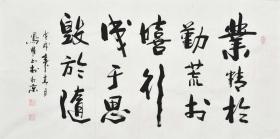 業精於
勤荒於
嬉行
成于思
毀於隨